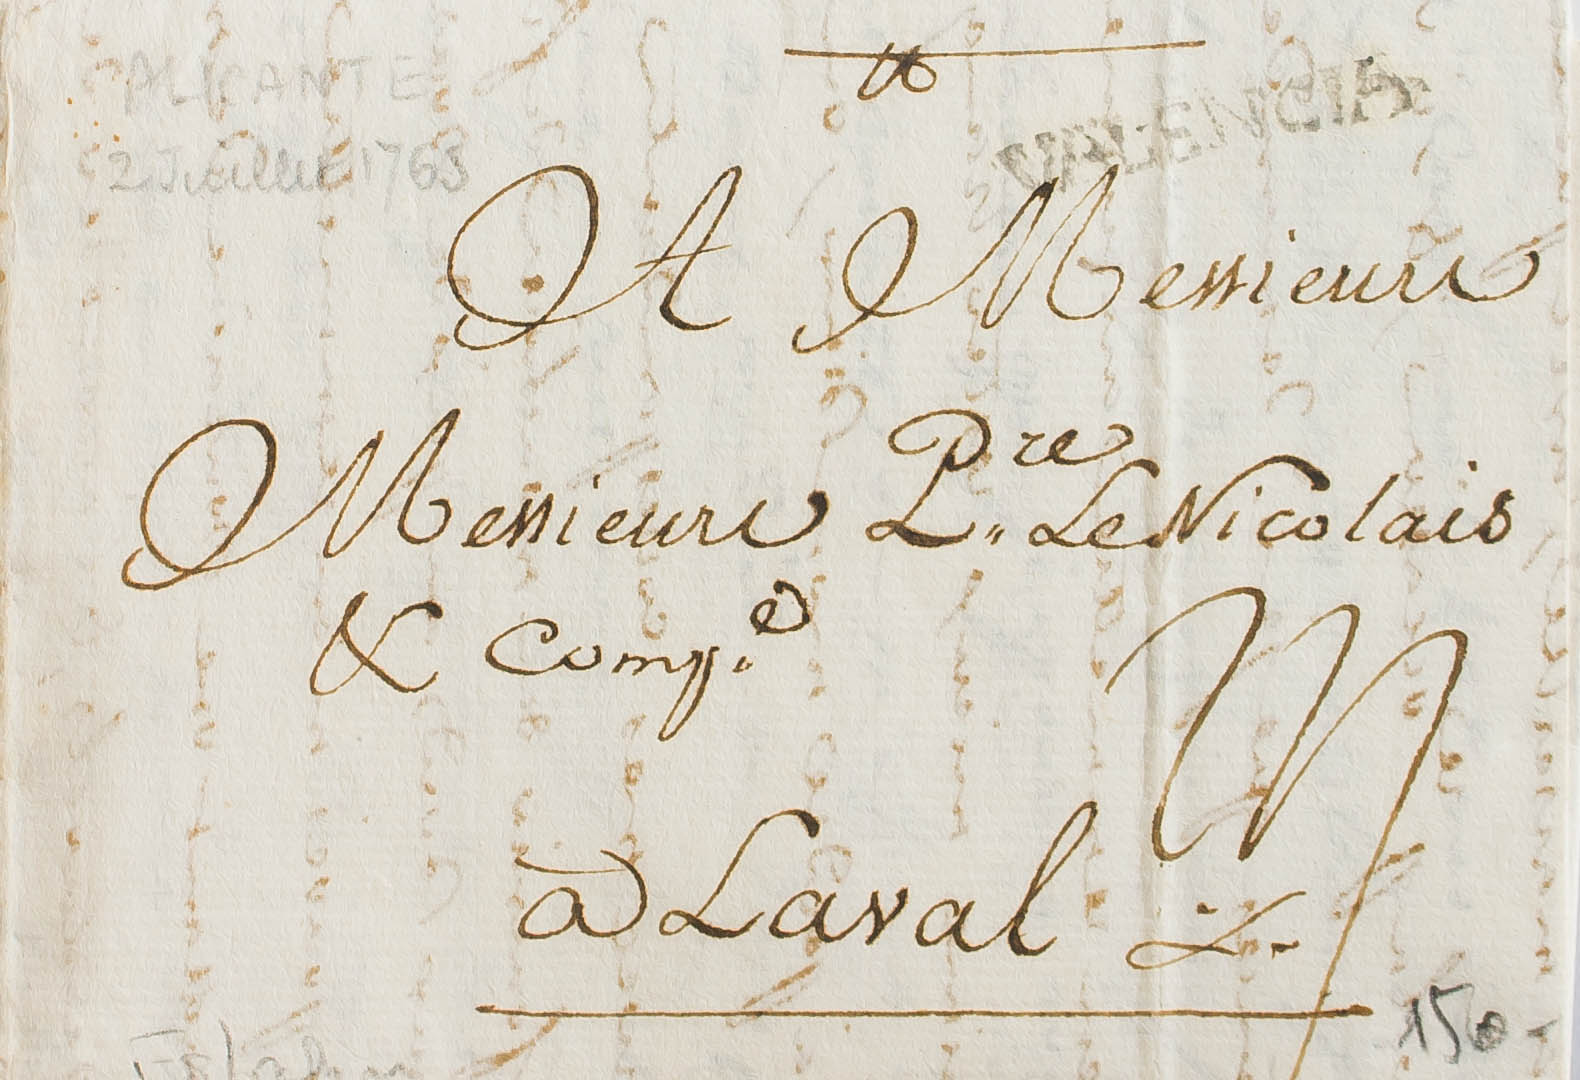 ALICANTE
2 Juillet 1763
VALENCIA
A Messieurs
Messieurs Pre Le Nicolais
& Comp.e
à Laval
150